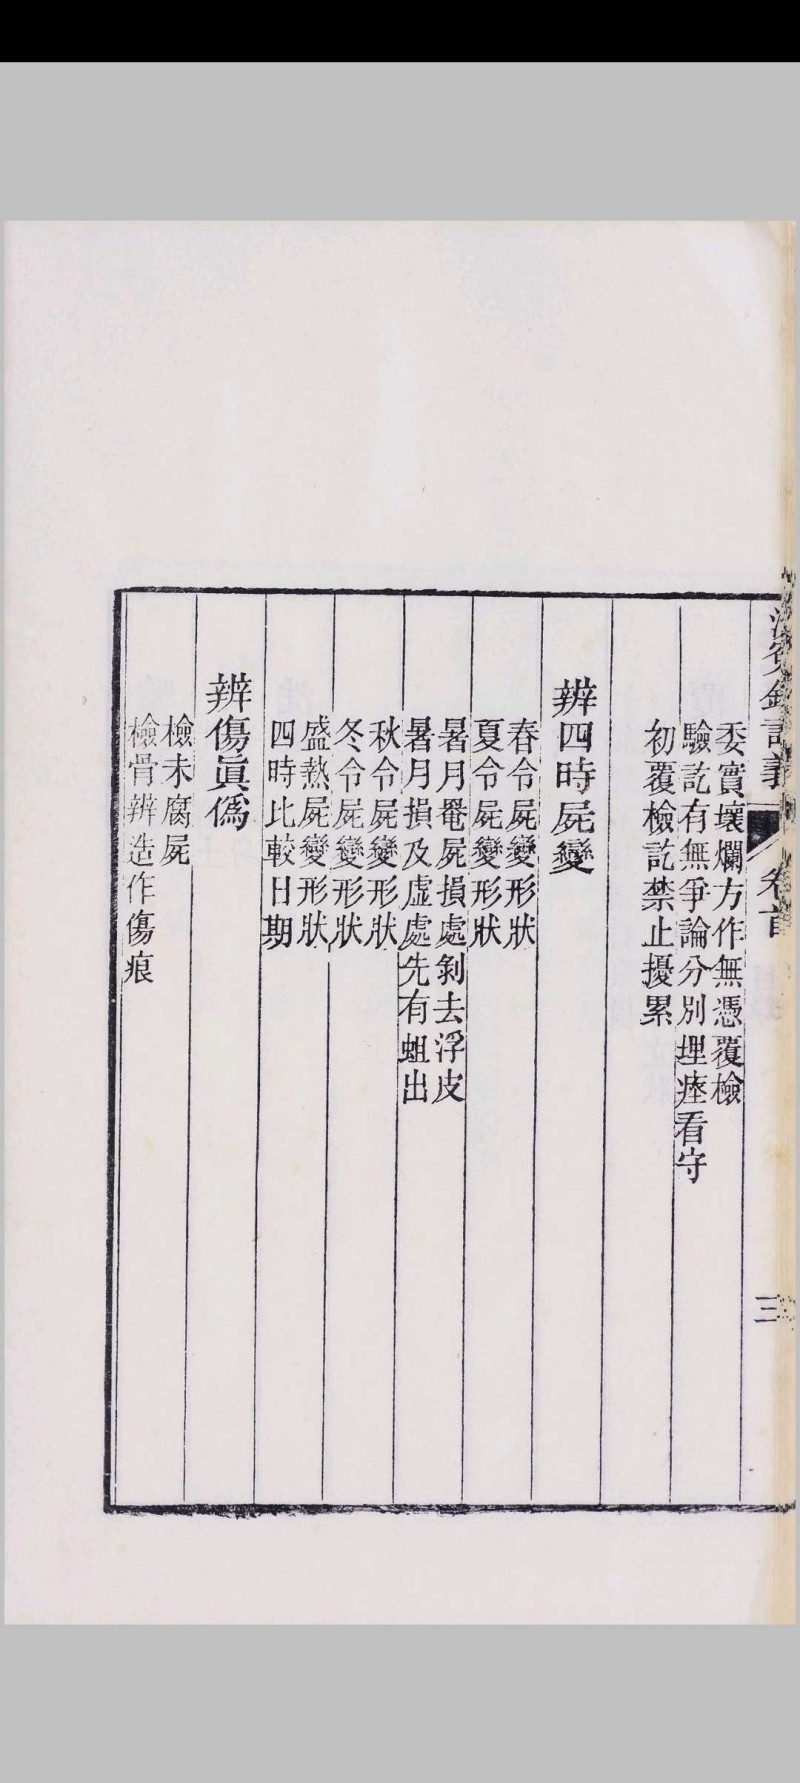 洗冤錄詳義 卷首
三
委實壞爛方作無憑覆檢
驗訖有無爭論分別埋瘞看守
初覆檢訖禁止擾累
辨四時屍變
春令屍變形狀
夏令屍變形狀
暑月罨屍損處剝去浮皮
暑月損及虛處先有蛆出
秋令屍變形狀
冬令屍變形狀
盛熱屍變形狀
四時比較日期
辨傷眞僞
檢未腐屍
檢骨辨造作傷痕